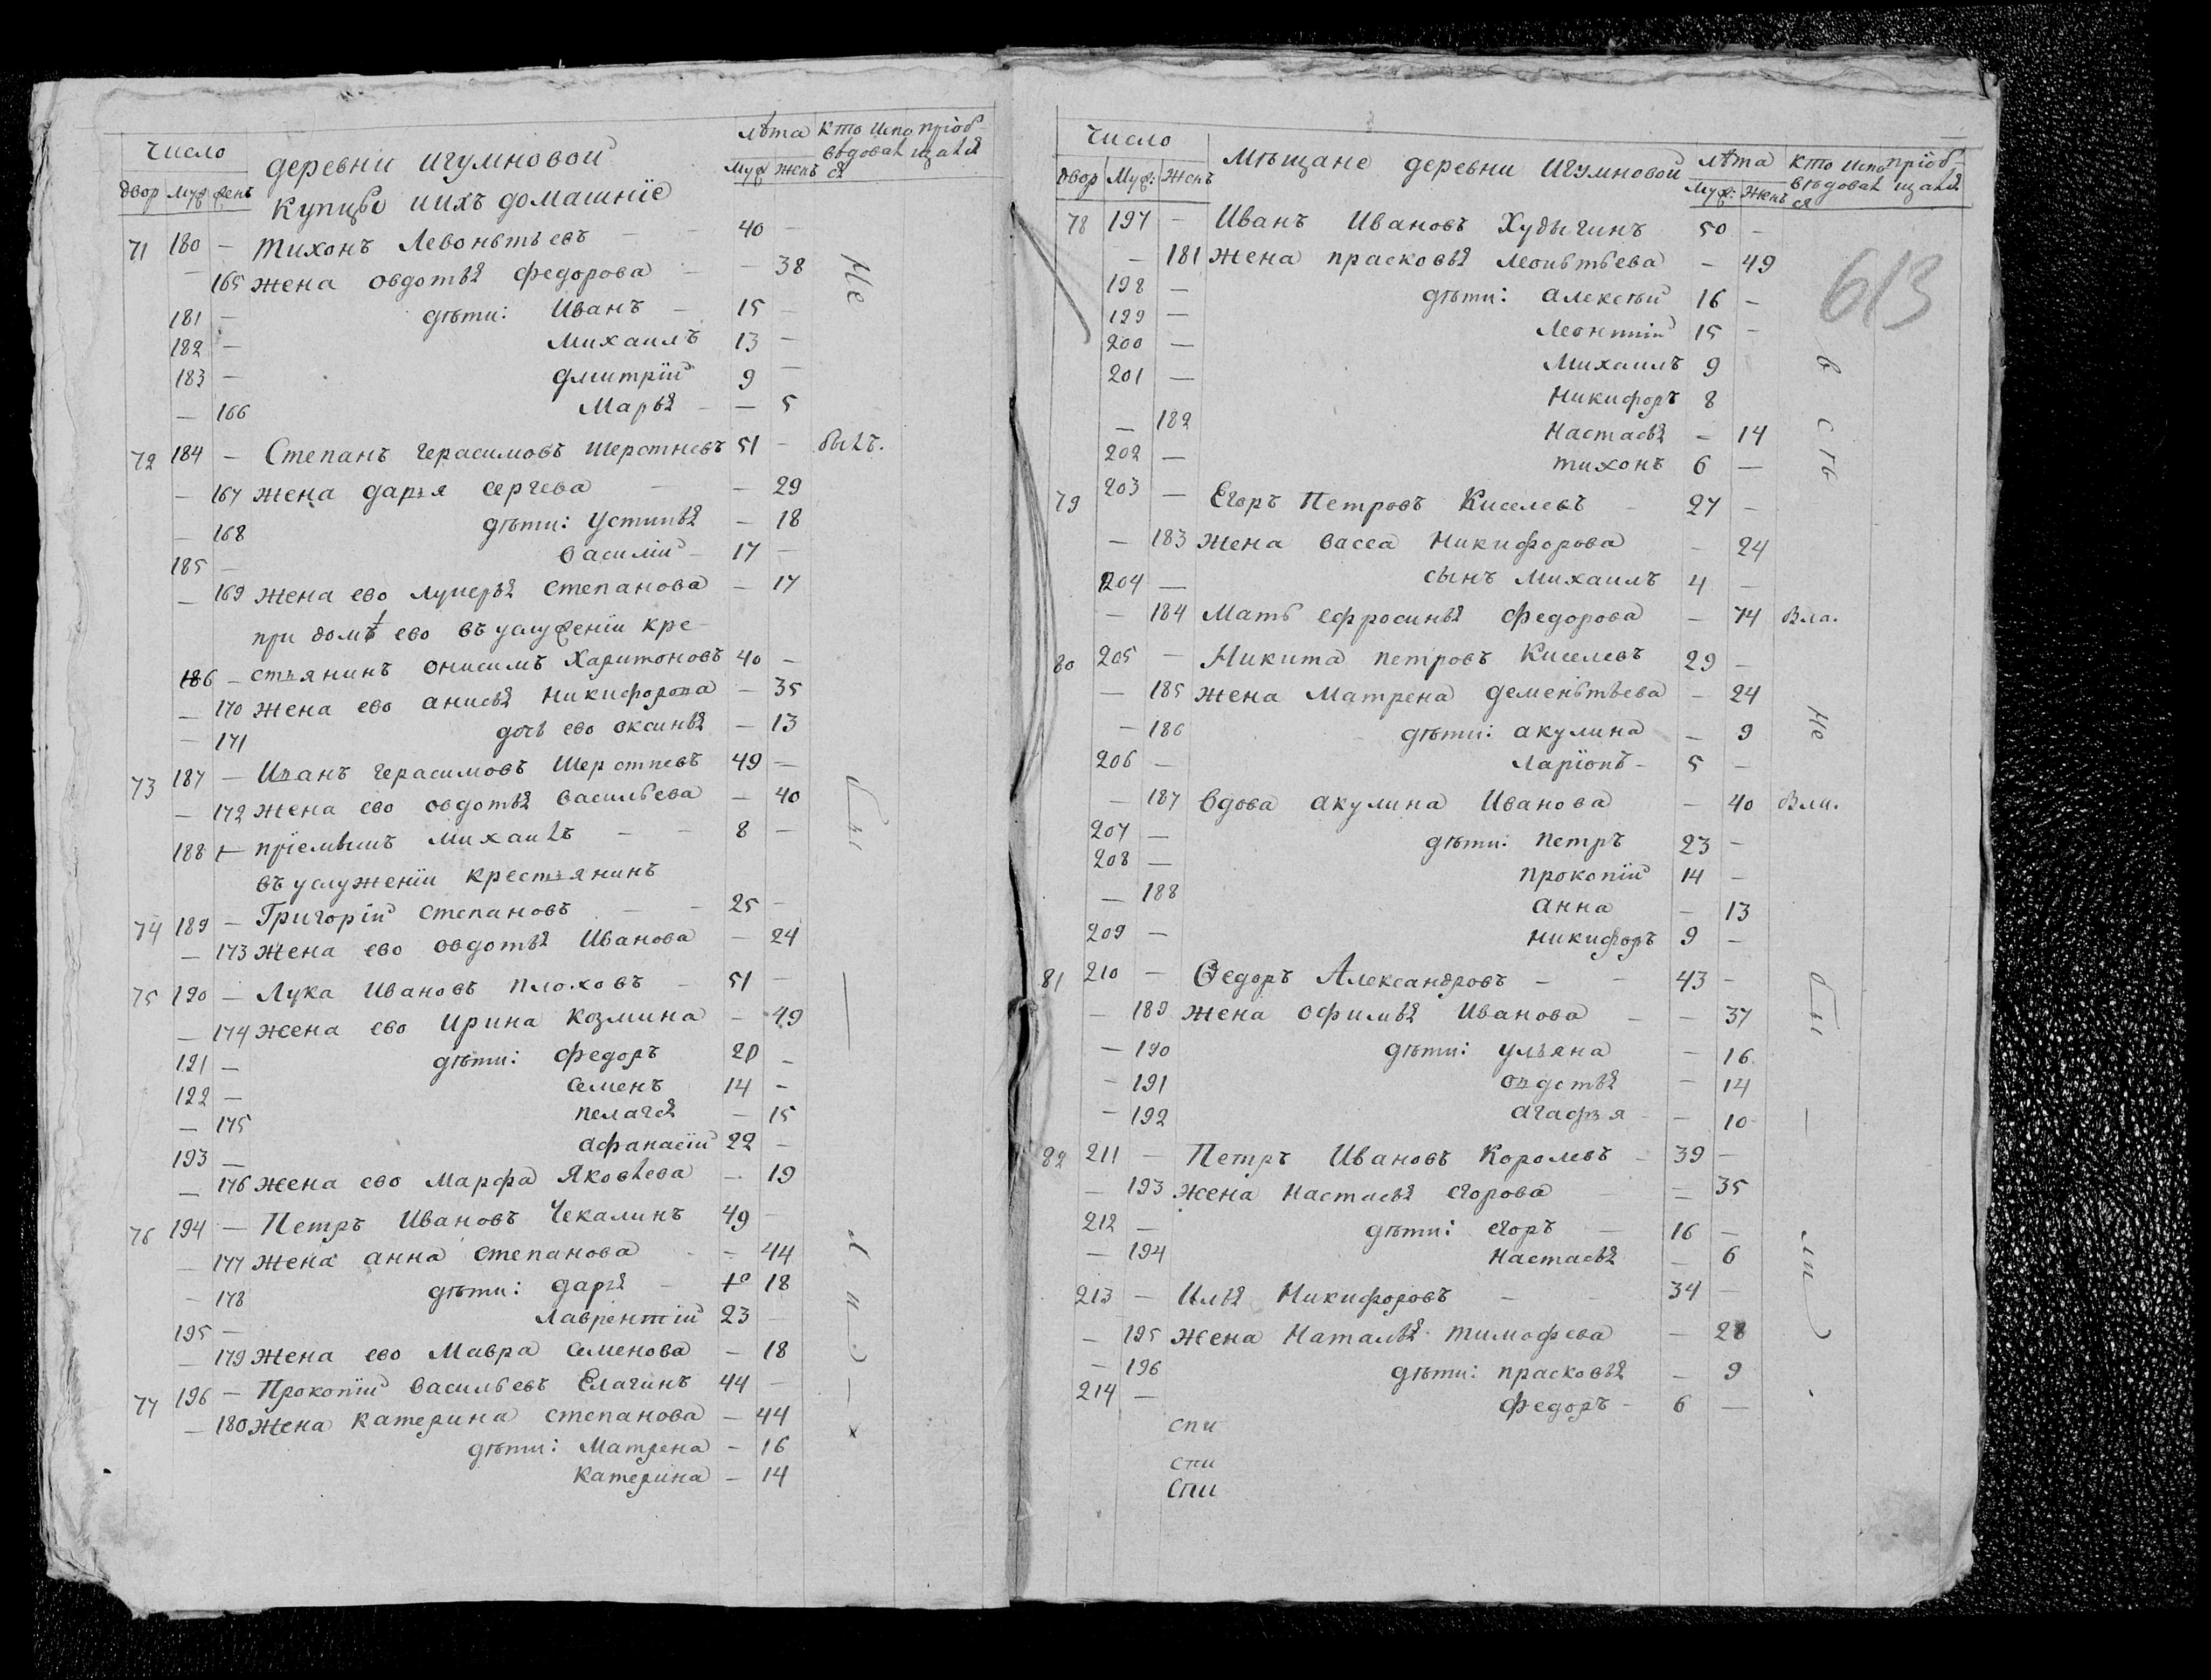 Число деревни игумновой лѣта кто испо пріоб
двор Муж жень Муж Жень вѣдовал ся щался
купцы иихъ домашніе
71 180 — Тихонъ Левонътьевъ — 40 —
— 165 жена овдотья федорова — 38
181 — дѣти: Иванъ — 15 —
182 — Михаилъ 13 —
183 — дмитрій 9 —
— 166 Марья — — 5
72 184 — Степанъ герасимовъ шерстневъ 51 — былъ.
— 167 жена даръя сергева — 29
— 168 дѣти: Устинья — 18
185 — василій — 17 —
— 169 жена ево лукерья степанова — 17
при домѣ ево въ услуженіи кре-
186 — стъянинъ онисимъ Харитоновъ 40 —
— 170 жена ево анисья никифорова — 35
— 171 дочь ево оксинья — 13
73 187 — Иванъ герасимовъ шерстневъ 49 —
— 172 жена ево овдотья васильева — 40
188 — пріемышъ михаилъ — — 8 —
въ услуженіи крестъянинъ
74 189 — Григорій степановъ — 25 —
— 173 жена ево овдотья Иванова — 24
75 190 — Лука Ивановъ плоховъ — 51 —
— 174 жена ево Ирина козмина — 49
191 — дѣти: федоръ 20 —
192 — семенъ 14 —
— 175 пелагея — 15
193 — афанасій 22 —
— 176 жена ево Марфа Яковлева — 19
76 194 — Петръ Ивановъ Чекалинъ 49 —
— 177 жена анна степанова — 44
— 178 дѣти: даръя — 18
195 — лаврентій 23 —
— 179 жена ево Мавра семенова — 18
77 196 — Прокопій васильевъ Елагинъ 44 —
— 180 жена катерина степанова — 44
дѣти: Матрена — 16
катерина — 14
Не
бы
—
ли
—
х
Число Мѣщане деревни Игумновой лѣта кто испо пріоб-
двор Муж: Жень Муж: Жень вѣдовал ся щался
78 197 — Иванъ Ивановъ Худыгинъ 50 —
— 181 жена прасковья леонътьева — 49
613
198 — дѣти: алексѣй 16 —
199 — Леонтій 15 —
200 — Михаилъ 9
201 — Никифоръ 8
— 182 Настасья — 14
202 — тихонъ 6 —
79 203 — Егоръ Петровъ Киселевъ — 27 —
— 183 жена васса Никифорова — 24
204 — сынъ Михаилъ 4 —
— 184 Мать ефросинья федорова — 74
80 205 — Никита петровъ Киселевъ 29 —
— 185 жена Матрена дементьева — 24
— 186 дѣти: акулина — 9
206 — ларіонъ — 5 —
— 187 вдова акулина Иванова — 40
207 — дѣти: петръ 23 —
208 — прокопій 14 —
— 188 анна — 13
209 — никифоръ 9 —
81 210 — Федоръ Александровъ — — 43 —
— 189 жена офимья Иванова — — 37
— 190 дѣти: ульяна — 16
— 191 овдотья — 14
— 192 агафъя — — 10
82 211 — Петръ Ивановъ Королевъ — 39 —
— 193 жена настасья егорова — 35
212 — дѣти: егоръ — 16 —
— 194 настасья — 6
213 — Илья Никифоровъ — — 34 —
— 195 жена Наталья тимофева — 28
— 196 дѣти: прасковья — 9
214 — федоръ — 6 —
спи
спи
спи
Не
бы
—
ли